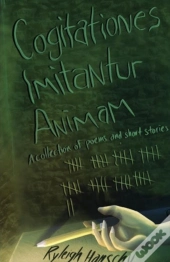 Cogitationes
Imitantur
Animam
A collection of poems and short stories
Ryleigh Hansch
wook